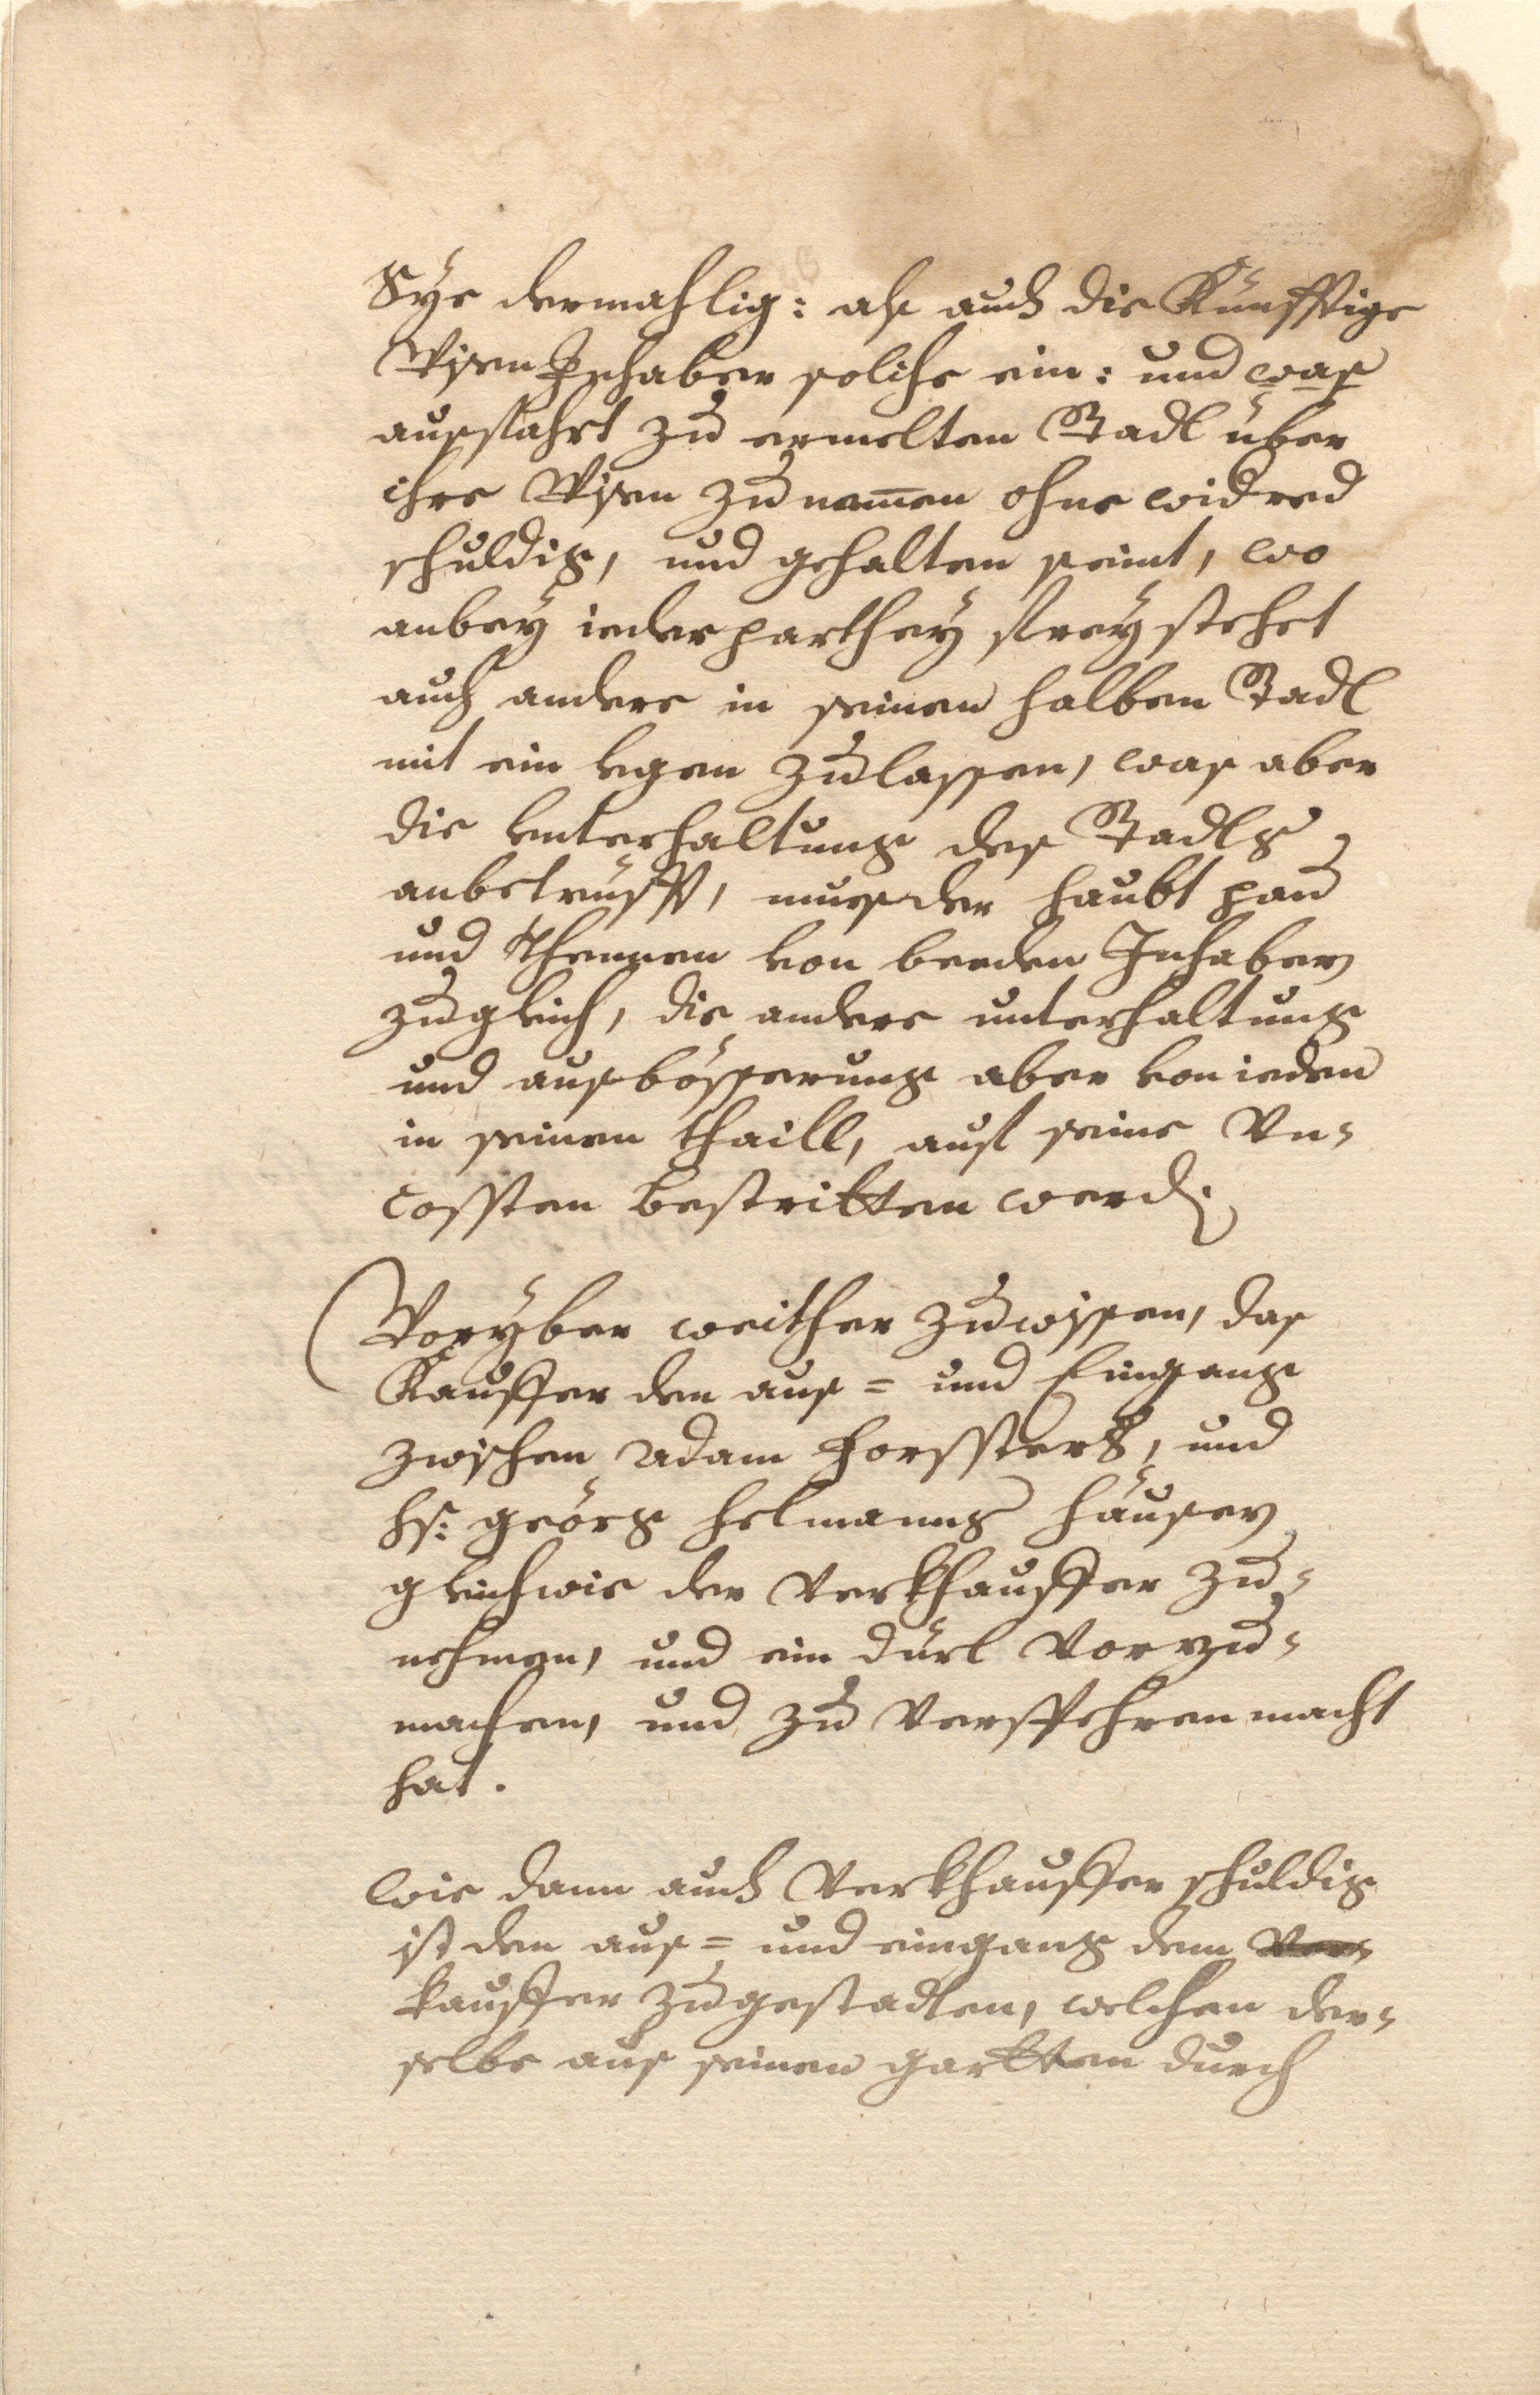 Sÿe dermahlig: als auch die Künfftige
Wisen Inhaber solche ein: und was
ausfahrt zu ermelten Stadl über
ihre Wisen zu nem̄en ohne widred
schuldig, und gehalten seint, wo
anbeÿ ieder parthey freÿ stehet
auch andere in seinen halben Stadl
mit ein legen zu lassen, was aber
die Unterhaltung des Stadls
anbetrüfft, mues der haubt pau
und Thennen von beeden Inhabern
zugleich, die andere unterhaltung
und ausbösserung aber von ieden
in seinen thaill, auf seine Un=
cossten bestritten werdn.
Vorÿber weither zu wissen, das
Kauffer den aus= und Eingang
zwischen Adam Forssters, und
Hs: geörg Helmanns häuser
gleichwie der Verkhauffer zu=
nehmen, und ein dürl Vorzu=
machen, und zu Versspehren macht
hat.
Wie dann auch Verkhauffer schuldig
ist den aus= und eingang dem Ver=
kauffer zu gestadten, welchen der=
selbe aus seinen gartten durch